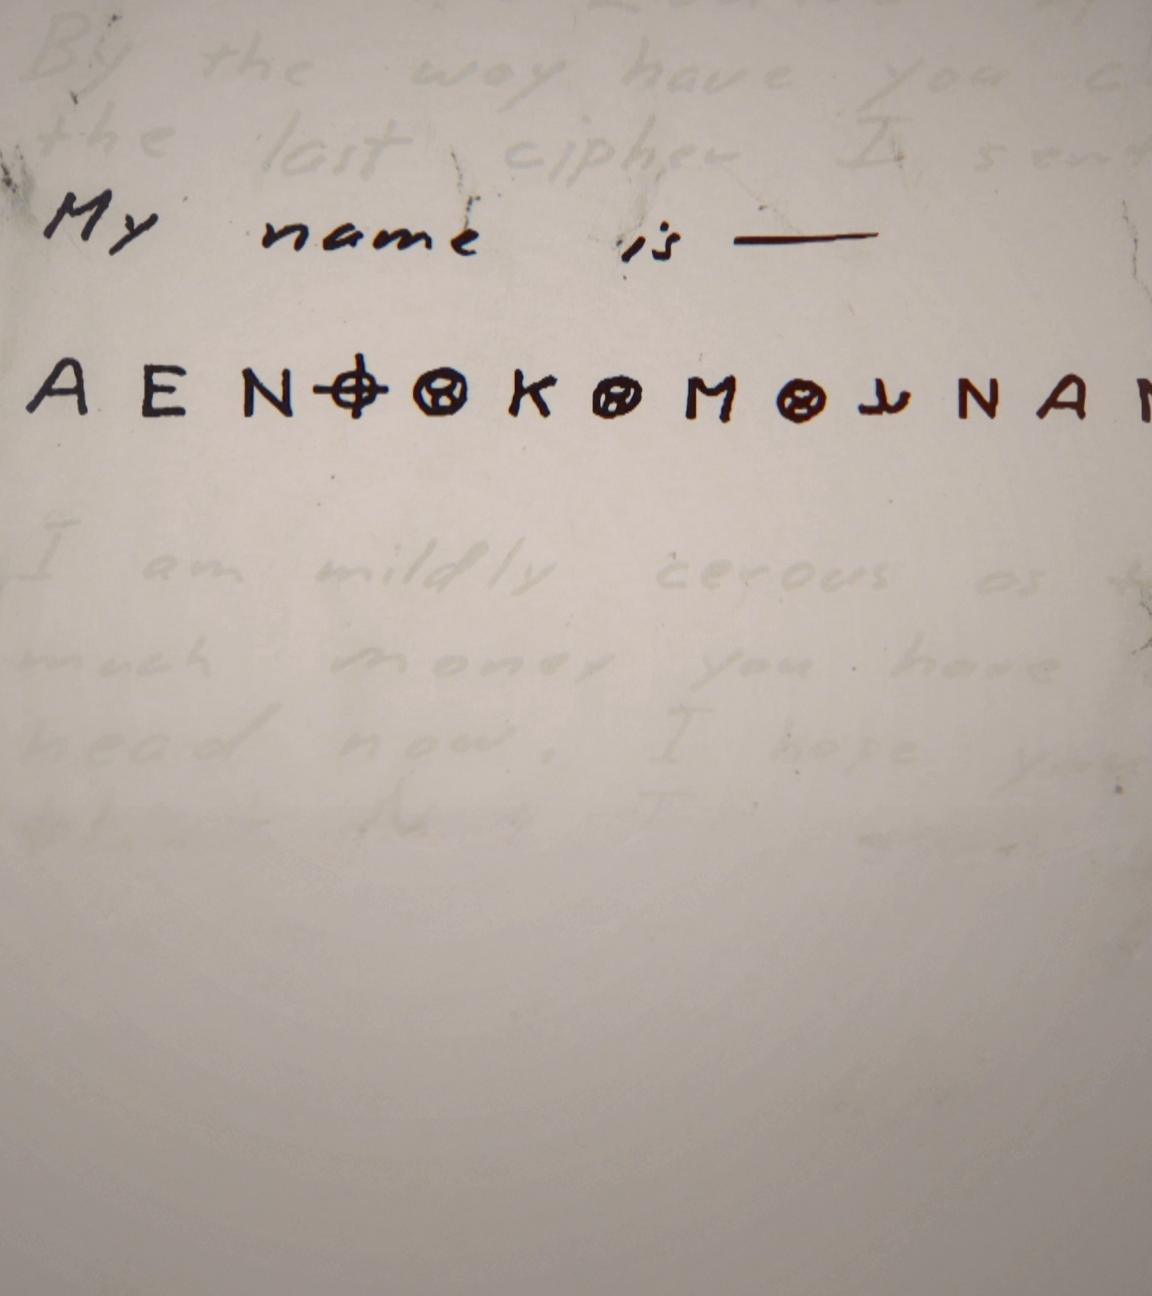 By the way have you c
the last cipher I sent
My name is —
A E N ⌖ ⊗ K ⊗ M ⊗ N A
I am mildly cerous as t
much money you have
head now. I hope you